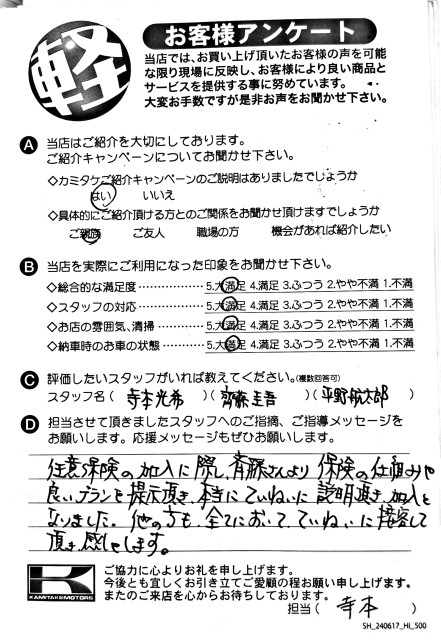 軽
お客様アンケート
当店では、お買い上げ頂いたお客様の声を可能
な限り現場に反映し、お客様により良い商品と
サービスを提供する事に努めています。
大変お手数ですが是非お声をお聞かせ下さい。
A 当店はご紹介を大切にしております。
ご紹介キャンペーンについてお聞かせ下さい。
◇カミタケご紹介キャンペーンのご説明はありましたでしょうか
はい いいえ
◇具体的にご紹介頂ける方とのご関係をお聞かせ頂けますでしょうか
ご親族 ご友人 職場の方 機会があれば紹介したい
B 当店を実際にご利用になった印象をお聞かせ下さい。
◇総合的な満足度…………… 5.大満足 4.満足 3.ふつう 2.やや不満 1.不満
◇スタッフの対応…………… 5.大満足 4.満足 3.ふつう 2.やや不満 1.不満
◇お店の雰囲気、清掃……… 5.大満足 4.満足 3.ふつう 2.やや不満 1.不満
◇納車時のお車の状態……… 5.大満足 4.満足 3.ふつう 2.やや不満 1.不満
C 評価したいスタッフがいれば教えてください。(複数回答可)
スタッフ名(寺本光希)(齊藤圭吾)(平野航太郎)
D 担当させて頂きましたスタッフへのご指摘、ご指導メッセージを
お願いします。応援メッセージもぜひお願いします。
任意保険の加入に際し、斉藤さんより保険の仕組みや
良いプランを提示頂き、本当にていねいに説明頂き、加入と
なりました。他の方も、全てにおいて、ていねいに接客して
頂き感謝します。
K
KAMITAKEMOTORS
ご協力に心よりお礼を申し上げます。
今後とも宜しくお引き立てご愛顧の程お願い申し上げます。
またのご来店を心からお待ちしております。
担当(寺本)
SH_240617_HI_500